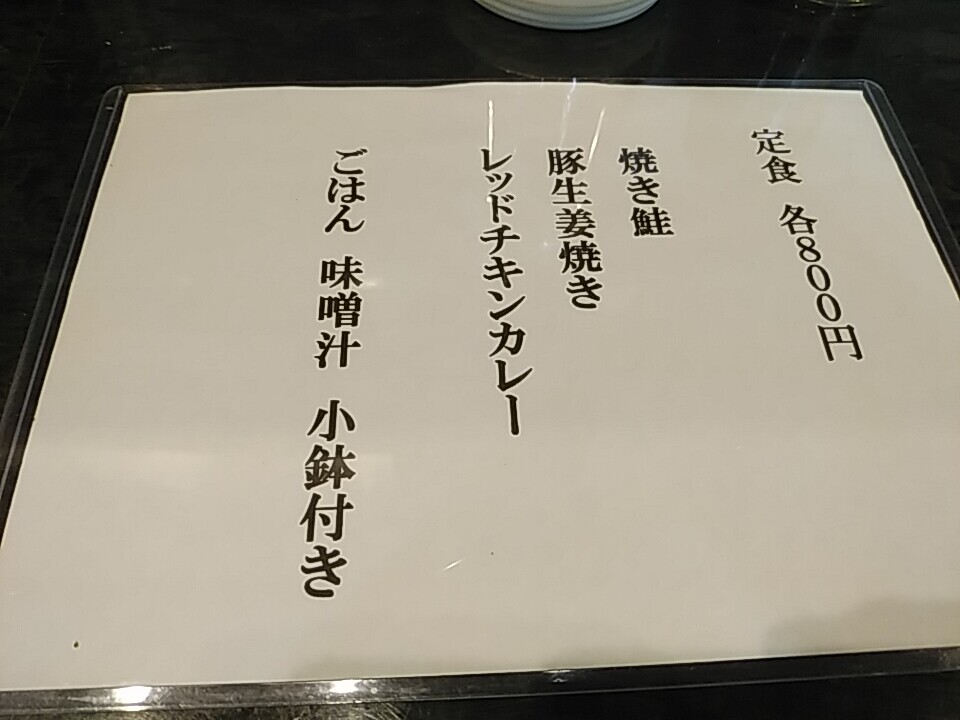 定食 各800円
焼き鮭
豚生姜焼き
レッドチキンカレー
ごはん 味噌汁 小鉢付き